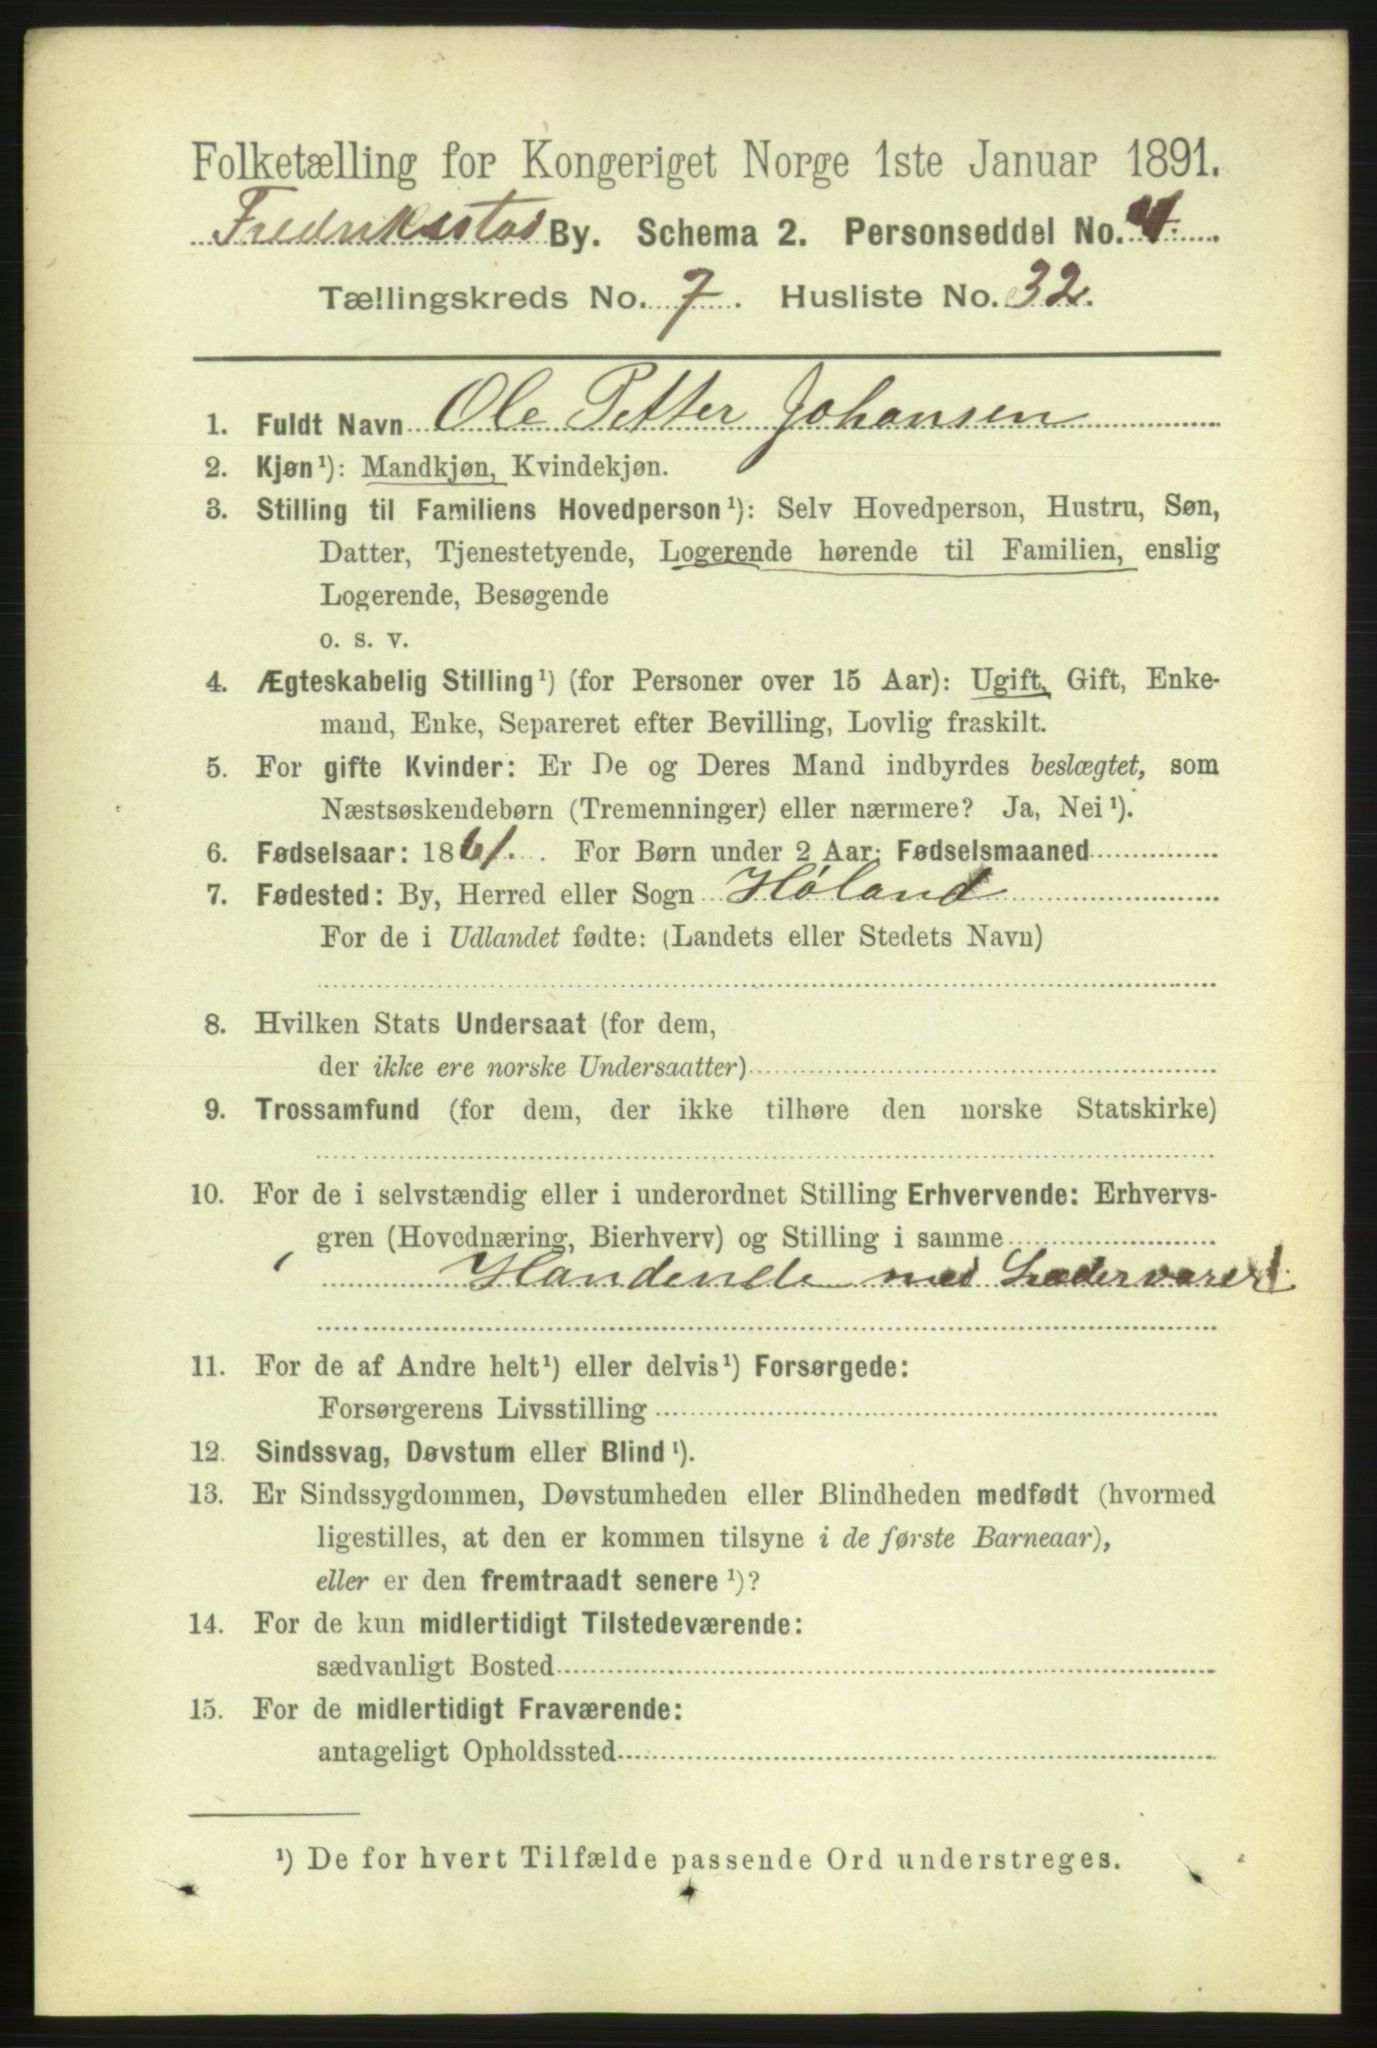 Folketælling for Kongeriget Norge 1ste Januar 1891.
Fredriksstad By. Schema 2. Personseddel No. 4.
Tællingskreds No. 7. Husliste No. 32.
1. Fuldt Navn Ole Petter Johansen
2. Kjøn¹): Mandkjøn, Kvindekjøn.
3. Stilling til Familiens Hovedperson¹): Selv Hovedperson, Hustru, Søn,
Datter, Tjenestetyende, Logerende hørende til Familien, enslig
Logerende, Besøgende
o. s. v.
4. Ægteskabelig Stilling¹) (for Personer over 15 Aar): Ugift, Gift, Enke-
mand, Enke, Separeret efter Bevilling, Lovlig fraskilt.
5. For gifte Kvinder: Er De og Deres Mand indbyrdes beslægtet, som
Næstsøskendebørn (Tremenninger) eller nærmere? Ja, Nei¹).
6. Fødselsaar: 1861. For Børn under 2 Aar: Fødselsmaaned
7. Fødested: By, Herred eller Sogn Høland
For de i Udlandet fødte: (Landets eller Stedets Navn)
8. Hvilken Stats Undersaat (for dem,
der ikke ere norske Undersaatter)
9. Trossamfund (for dem, der ikke tilhøre den norske Statskirke)
10. For de i selvstændig eller i underordnet Stilling Erhvervende: Erhvervs-
gren (Hovednæring, Bierhverv) og Stilling i samme
Handende med Lædervarer
11. For de af Andre helt¹) eller delvis¹) Forsørgede:
Forsørgerens Livsstilling
12. Sindssvag, Døvstum eller Blind¹).
13. Er Sindssygdommen, Døvstumheden eller Blindheden medfødt (hvormed
ligestilles, at den er kommen tilsyne i de første Barneaar),
eller er den fremtraadt senere¹)?
14. For de kun midlertidigt Tilstedeværende:
sædvanligt Bosted
15. For de midlertidigt Fraværende:
antageligt Opholdssted
¹) De for hvert Tilfælde passende Ord understreges.